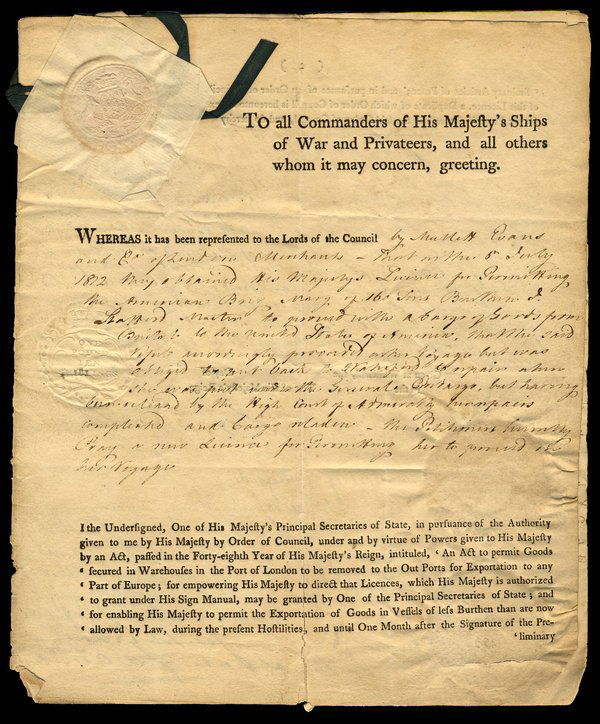 To all Commanders of His Majeſty's Ships
of War and Privateers, and all others
whom it may concern, greeting.
WHEREAS it has been repreſented to the Lords of the Council by Mullett Evans
and Co. of London Merchants – That on the 5 July
1812 they obtained His Majestys Licence for Permitting
the American Brig Mary of 160 Tons Burthen J.
Stafford Master to proceed with a Cargo of Goods from
Bristol to the United States of America, that the said
Vessel accordingly proceeded on her Voyage but was
obliged to put back to Waterford to repair when
she was put under the General Embargo, but having
been released by the High Court of Admiralty her repairs
completed and Cargo reladen – the Petitioners humbly
Pray a new Licence for Permitting her to proceed on
her Voyage
I the Underſigned, One of His Majeſty's Principal Secretaries of State, in purſuance of the Authority
given to me by His Majeſty by Order of Council, under and by virtue of Powers given to His Majeſty
by an Act, paſſed in the Forty-eighth Year of His Majeſty's Reign, intituled, ‘ An Act to permit Goods
‘ ſecured in Warehouſes in the Port of London to be removed to the Out Ports for Exportation to any
‘ Part of Europe ; for empowering His Majeſty to direct that Licences, which His Majeſty is authorized
‘ to grant under His Sign Manual, may be granted by One of the Principal Secretaries of State ; and
‘ for enabling His Majeſty to permit the Exportation of Goods in Veſſels of leſs Burthen than are now
‘ allowed by Law, during the preſent Hoſtilities, and until One Month after the Signature of the Pre-
‘ liminary